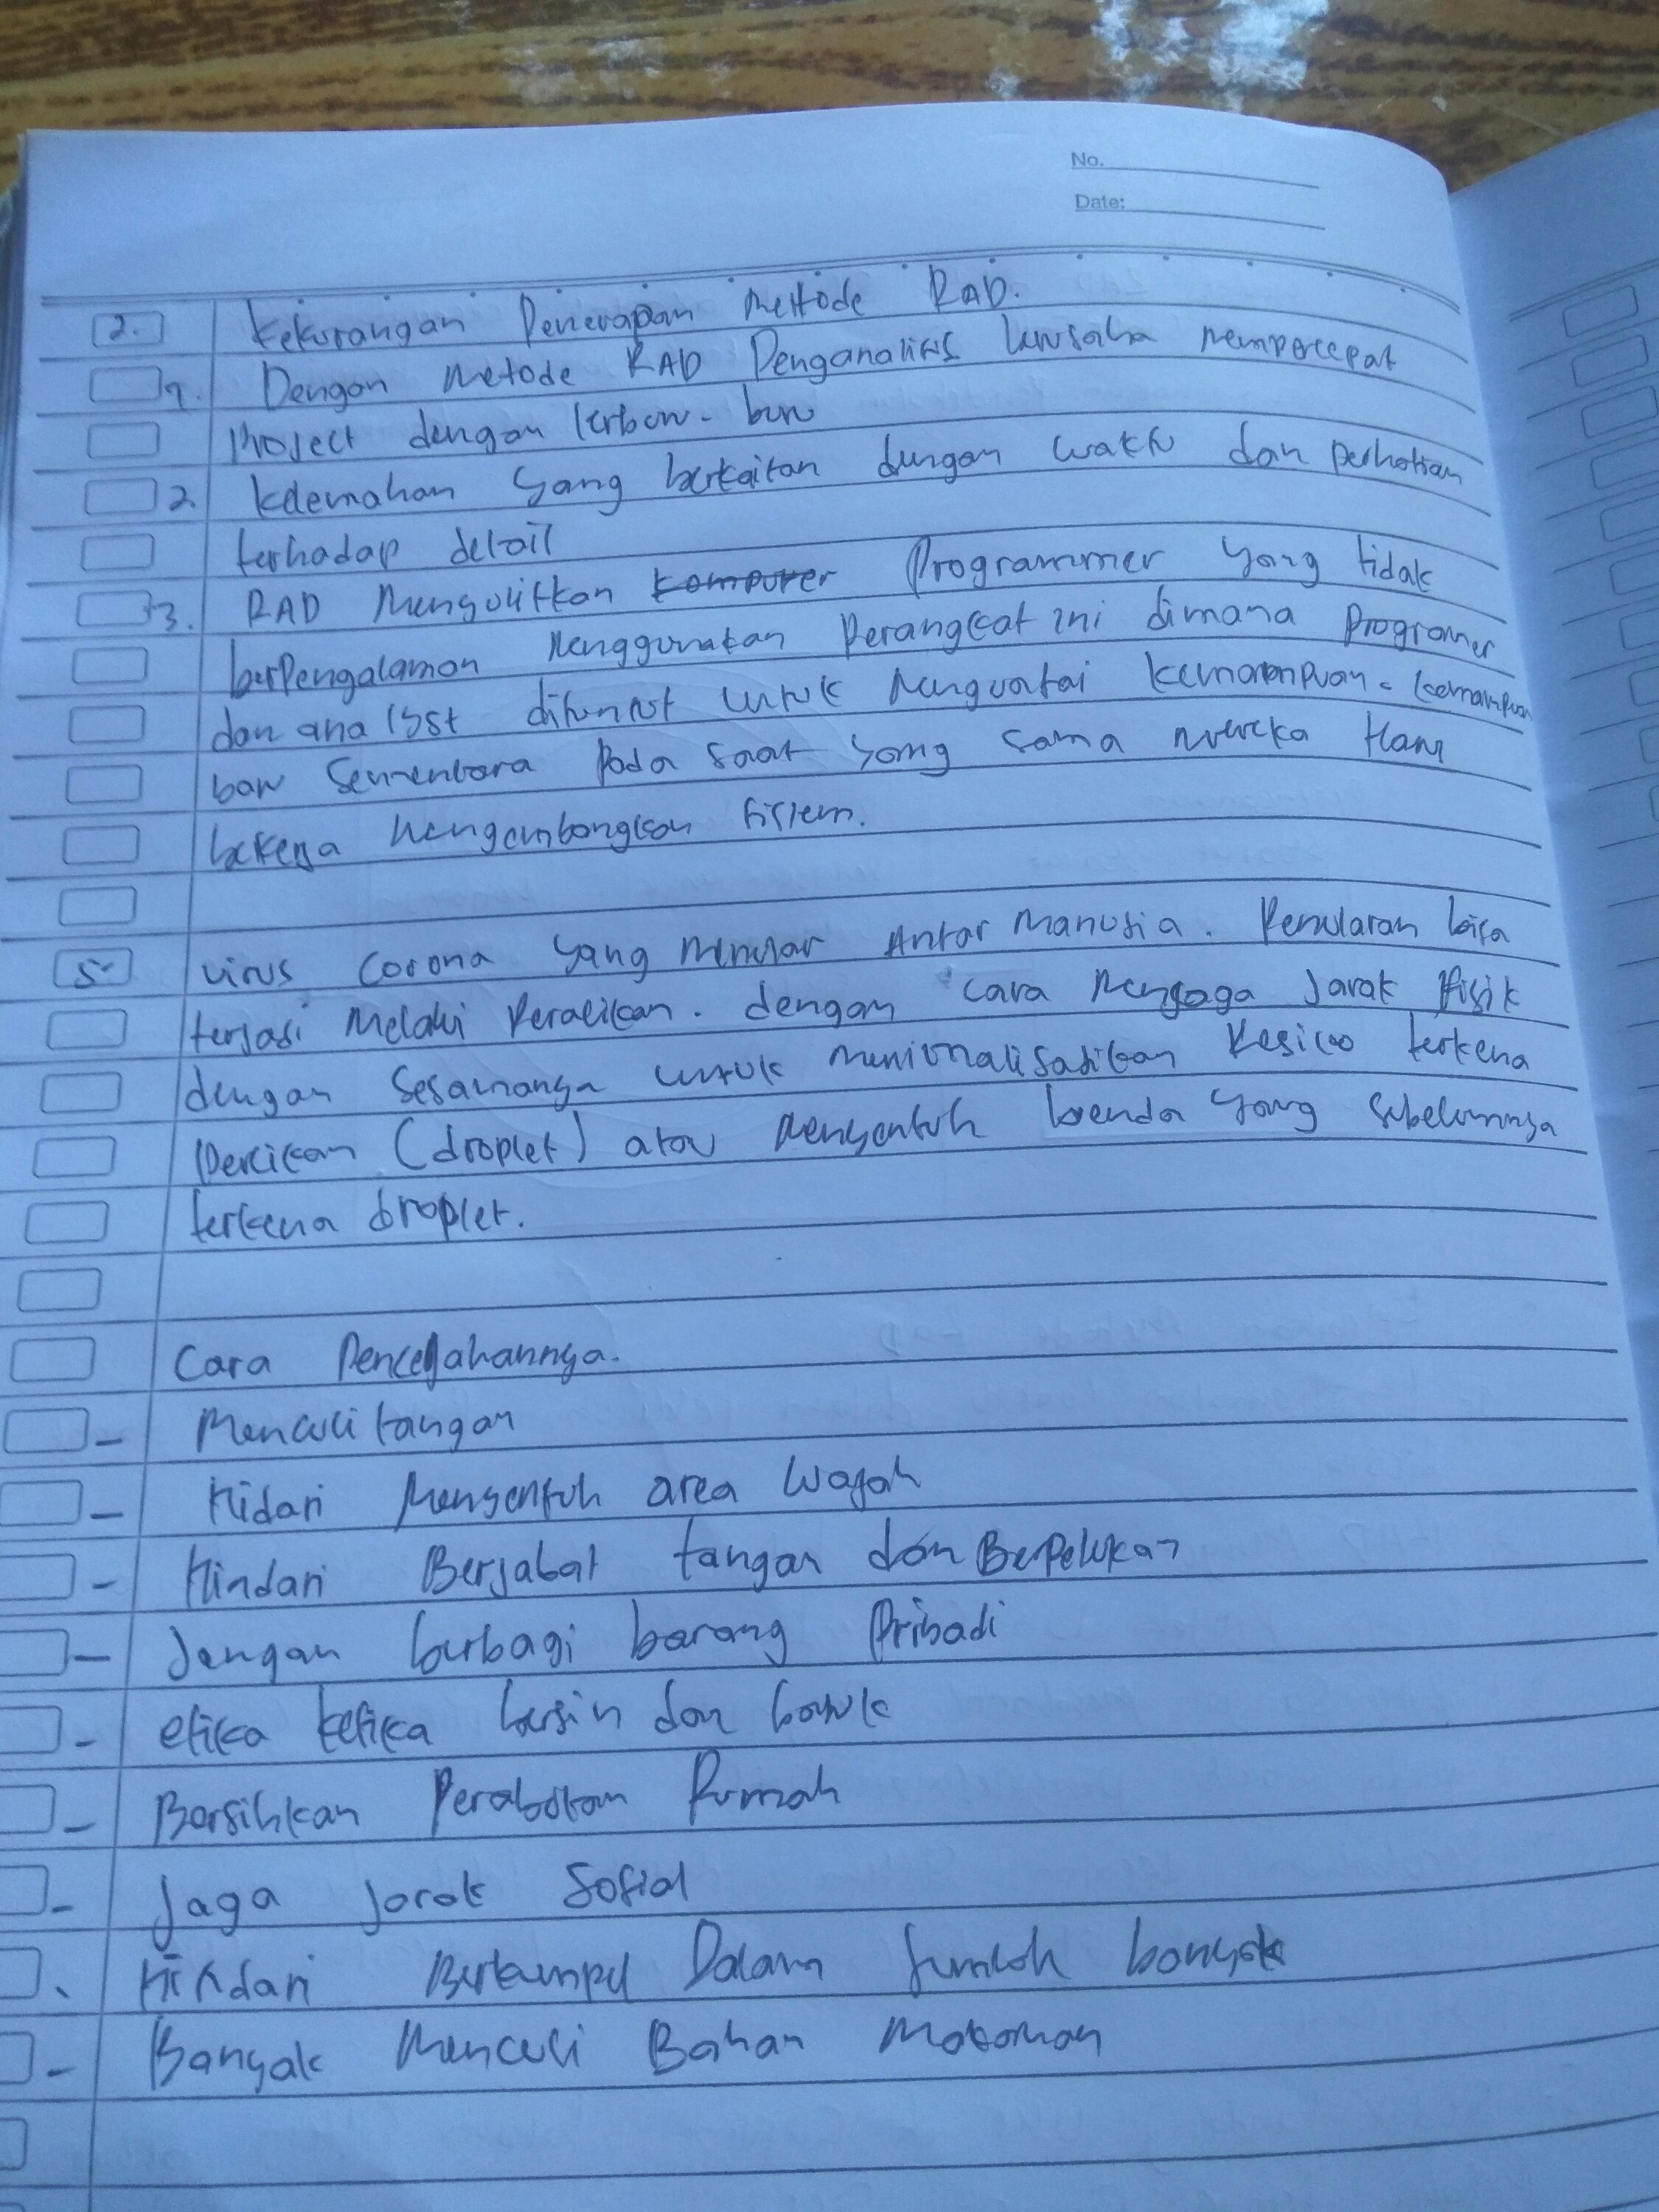 No.
Date:
2. Kekurangan Penerapan Metode RAD.
1. Dengan Metode RAD Penganalisis berusaha mempercepat
Project dengan terburu-buru
2. Kelemahan yang berkaitan dengan waktu dan perhatian
terhadap detail
3. RAD Menyulitkan komputer Programmer yang tidak
berpengalaman menggunakan Perangkat ini dimana Programer
dan analyst dituntut untuk menguasai kemampuan-kemampuan
baru sementara pada saat yang sama mereka Harus
bekerja mengembangkan sistem.
5. virus corona yang menular Antar Manusia. Penularan bisa
terjadi Melalui Percikan. dengan cara menjaga Jarak Fisik
dengan sesamanya untuk Resiko terkena
Percikan (droplet) atau menyentuh benda yang sebelumnya
terkena droplet.
Cara Pencegahannya.
- Mencuci tangan
- Hidari Menyentuh area wajah
- Hindari Berjabat tangan dan Berpelukan
- Jangan berbagi barang Pribadi
- etika ketika bersin dan batuk
- Bersihkan Perabotan Rumah
- Jaga Jarak Sosial
- Hindari Berkumpul Dalam Jumlah banyak
- Banyak Mencuci Bahan Makanan